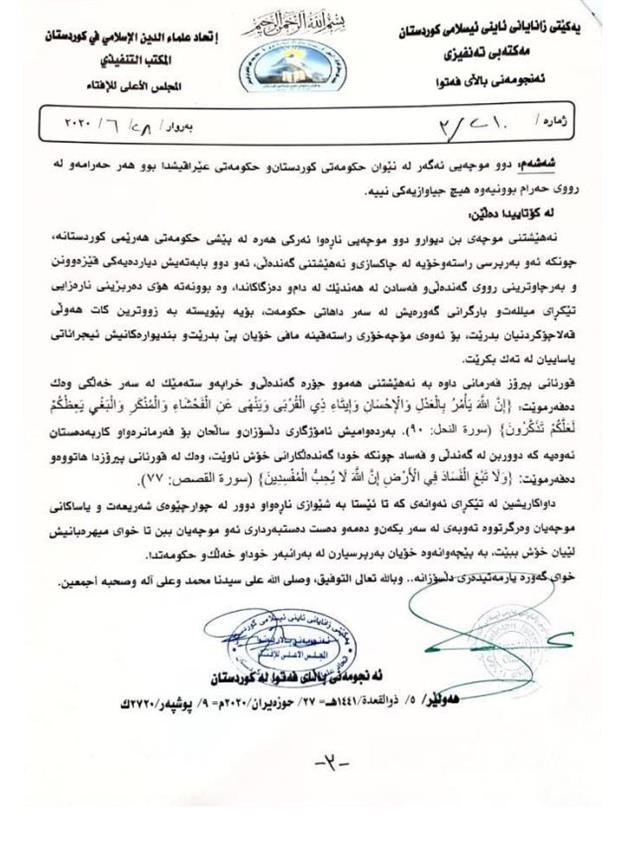 بسم الله الرحمن الرحيم
یەکێتی زانایانی ئاینی ئیسلامی کوردستان
مەکتەبی تەنفیزی
ئەنجومەنی باڵای فەتوا
إتحاد علماء الدين الإسلامي في كوردستان
المكتب التنفيذي
المجلس الأعلى للإفتاء
ژمارە/
بەروار/ ٢٨/ ٦/ ٢٠٢٠
شەشەم: دوو موچەیی ئەگەر لە نێوان حکومەتی کوردستان‌و حکومەتی عێراقیشدا بوو هەر حەرامەو لە
رووی حەرام بوونیەوە هیچ جیاوازیەکی نییە.
لە کۆتاییدا دەڵێن:
نەهێشتنی موچەی بن دیوارو دوو موچەیی ناڕەوا ئەرکی هەرە لە پێشی حکومەتی هەرێمی کوردستانە،
چونکە ئەو بەرپرسی راستەوخۆیە لە چاکسازی‌و نەهێشتنی گەندەڵی، ئەو دوو بابەتەیش دیاردەیەکی قێزەوونن
و بەرچاوترینی رووی گەندەڵی‌و فەسادن لە هەندێك لە دام‌و دەزگاکاندا، وە بوونەتە هۆی دەربڕینی نارەزایی
تێکڕای میللەت‌و بارگرانی گەورەیش لە سەر داهاتی حکومەت، بۆیە پێویستە بە زووترین کات هەوڵی
قەلاچۆکردنیان بدرێت، بۆ ئەوەی مۆچەخۆری راستەقینە مافی خۆیان پێ بدرێت‌و بندیوارەکانیش ئیجرائاتی
یاساییان لە تەك بکرێت.
قورئانی پیرۆز فەرمانی داوە بە نەهێشتنی هەموو جۆرە گەندەڵی‌و خراپەو ستەمێك لە سەر خەڵکی وەك
دەفەرموێت: {إِنَّ اللَّهَ يَأْمُرُ بِالْعَدْلِ وَالْإِحْسَانِ وَإِيتَاءِ ذِي الْقُرْبَى وَيَنْهَى عَنِ الْفَحْشَاءِ وَالْمُنْكَرِ وَالْبَغْيِ يَعِظُكُمْ
لَعَلَّكُمْ تَذَكَّرُونَ} (سورة النحل: ٩٠). بەردەوامیش ئامۆژگاری دڵسۆزان‌و ساڵحان بۆ فەرمانرەواو کاربەدەستان
ئەوەیە کە دووربن لە گەندەڵی و فەساد چونکە خودا گەندەڵکارانی خۆش ناوێت، وەك لە قورئانی پیرۆزدا هاتووەو
دەفەرموێت: {وَلَا تَبْغِ الْفَسَادَ فِي الْأَرْضِ إِنَّ اللَّهَ لَا يُحِبُّ الْمُفْسِدِينَ} (سورة القصص: ٧٧).
داواکاریشین لە تێکڕای ئەوانەی کە تا ئێستا بە شێوازی ناڕەواو دوور لە چوارچێوەی شەریعەت و یاساکانی
موچەیان وەرگرتووە تەوبەی لە سەر بکەن‌و دەمەو دەست دەستبەرداری ئەو موچەیان ببن تا خوای میهرەبانیش
لێیان خۆش ببێت، بە پێچەوانەوە خۆیان بەرپرسیارن لە بەرانبەر خوداو خەڵك‌و حکومەتدا.
خوای گەورە یارمەتیدەری دڵسۆزانە.. وبالله تعالى التوفيق، وصلى الله على سيدنا محمد وعلى آله وصحبه أجمعين.
یەکێتی زانایانی ئاینی ئیسلامی کوردستان
المجلس الأعلى للإفتاء
ئەنجومەنی باڵای فەتوا لە کوردستان
هەولێر/ ٥/ ذوالقعدة/١٤٤١هـ= ٢٧/ حوزەیران/٢٠٢٠م= ٩/ پوشپەر/٢٧٢٠ك
-٣-